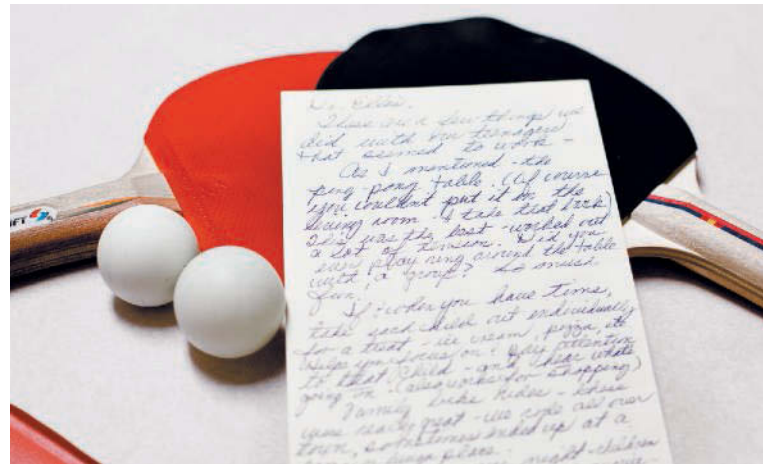 These are a few things we
did with our teenagers
that seemed to work -
As I mentioned - the
ping pong table. (Of course
you couldn't put it in the
living room. I take that back)
This was the best - worked out
a lot of tension. Did you
ever play ring around the table
with a group? So much
fun.
If & when you have time,
take each child out individually
for a treat - ice cream, pizza, etc
Helps you focus on & pay attention
to that child - and hear whats
going on. (also works for shopping)
Family bike rides - these
were really great - we rode all over
town, sometimes ended up at a
place.
night - children